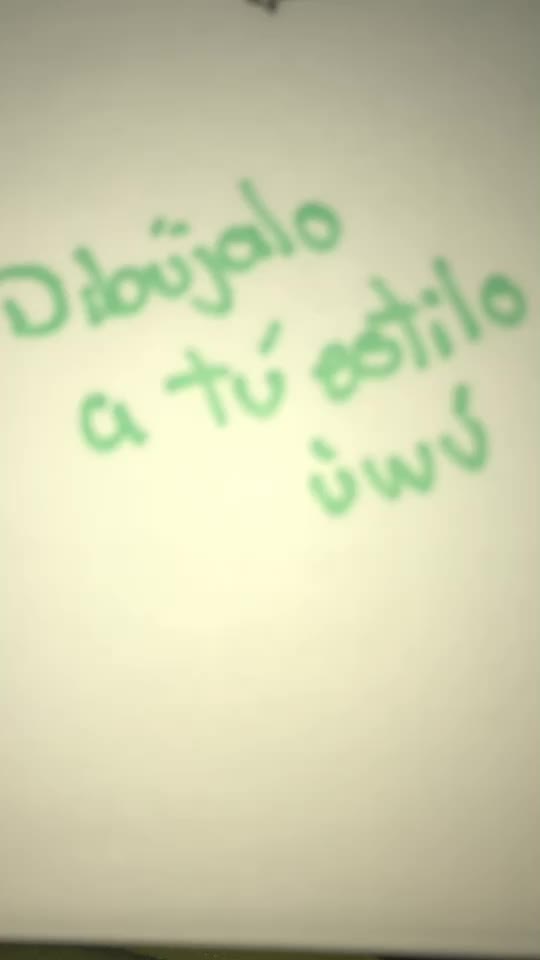 Dibújalo
a tú estilo
úwú